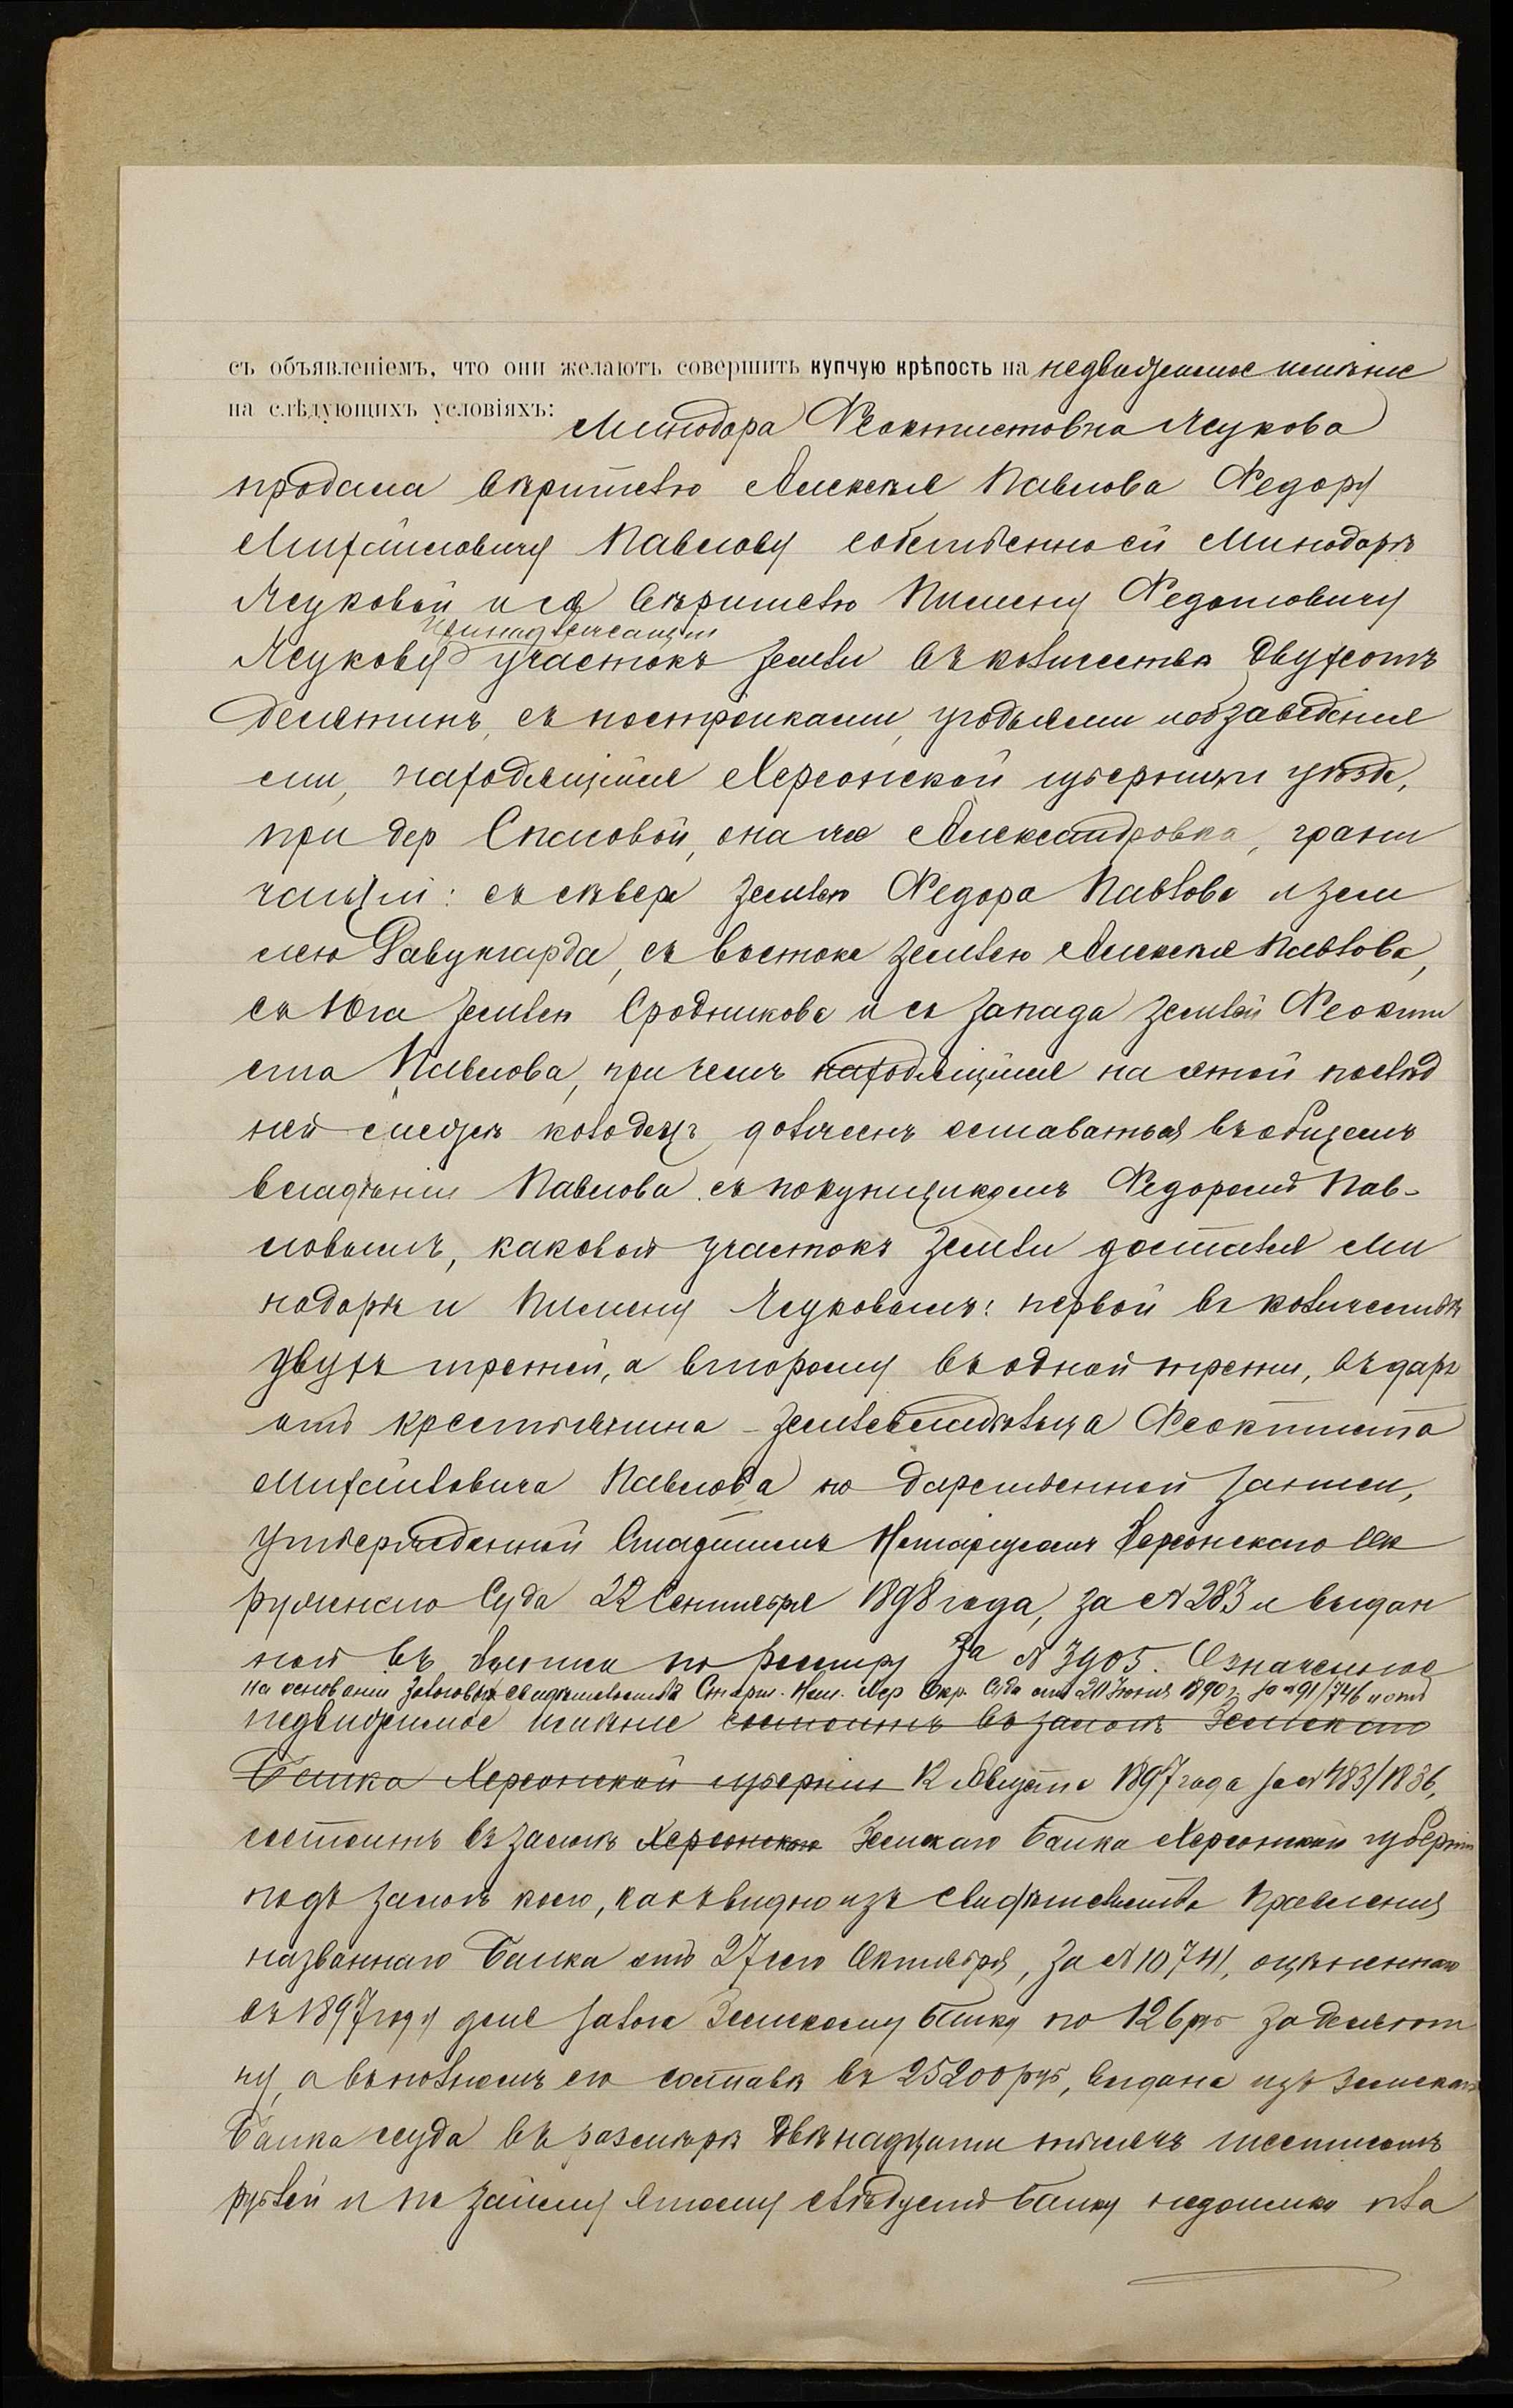 съ объявленіемъ, что они желаютъ совершить купчую крѣпость на недвижимое имѣніе
на слѣдующихъ условіяхъ: Минодора Феоктистовна Ясукова
продала вѣрителю Алексѣя Павлова Федору
Михайловичу Павлову собственной Минодорѣ
Ясуковой и ея вѣрителю Пимену Федотовичу
принадлежащій
Ясукову участокъ земли въ количествѣ двухсотъ
десятинъ, съ постройками, угодьями и обзаведенія
ми, находящійся Херсонской губерніи и уѣзда,
при дер Спасовой, она же Александровка, грани
чащій: съ сѣвера землею Федора Павлова и зем
лею, съ востока землею Алексѣя Павлова,
съ Юга землею Сродникова и съ запада землей Феокти
ста Павлова, при чемъ находящійся на этой послѣд
ней межѣ колодезь долженъ оставаться въ общемъ
владѣніи Павлова съ покупщикомъ Федоромъ Пав-
ловымъ, каковой участокъ земли достался Ми
нодорѣ и Пимену Ясуковымъ: первой въ количествѣ
двухъ третей, а второму въ одной трети, въ даръ
отъ крестьянина-землевладѣльца Феоктиста
Михайловича Павлова по дарственной записи,
утвержденной Старшимъ Нотаріусомъ Херсонскаго Ок
ружнаго Суда 22 Сентября 1898 года, за № 283 и выдан
ной въ выписи по реестру за № 3905. Означенное
на основаніи залоговыхъ свидѣтельствъ Старш. Нот. Хер Окр. Суда отъ 20 Іюня 1890 г. за № 91/746 и отъ
недвижимое имѣніе состоитъ въ залогѣ Земскаго
Банка Херсонской губерніи 12 Августа 1897 года за № 183/1836,
состоитъ въ залогѣ Херсонскаго Земскаго Банка Херсонской губерніи
подъ залогъ коего, какъ видно изъ свидѣтельства Правленія
названнаго Банка отъ 27сего Октября, за № 10741, оцѣненнаго
въ 1897 году для залога Земскому Банку по 126 руб за десяти
ну, а въ полномъ его составѣ въ 25200 руб, выдана изъ Земскаго
Банка ссуда въ размѣрѣ двѣнадцати тысячъ шестисотъ
рублей и по займу этому слѣдуетъ банку недоимки пла